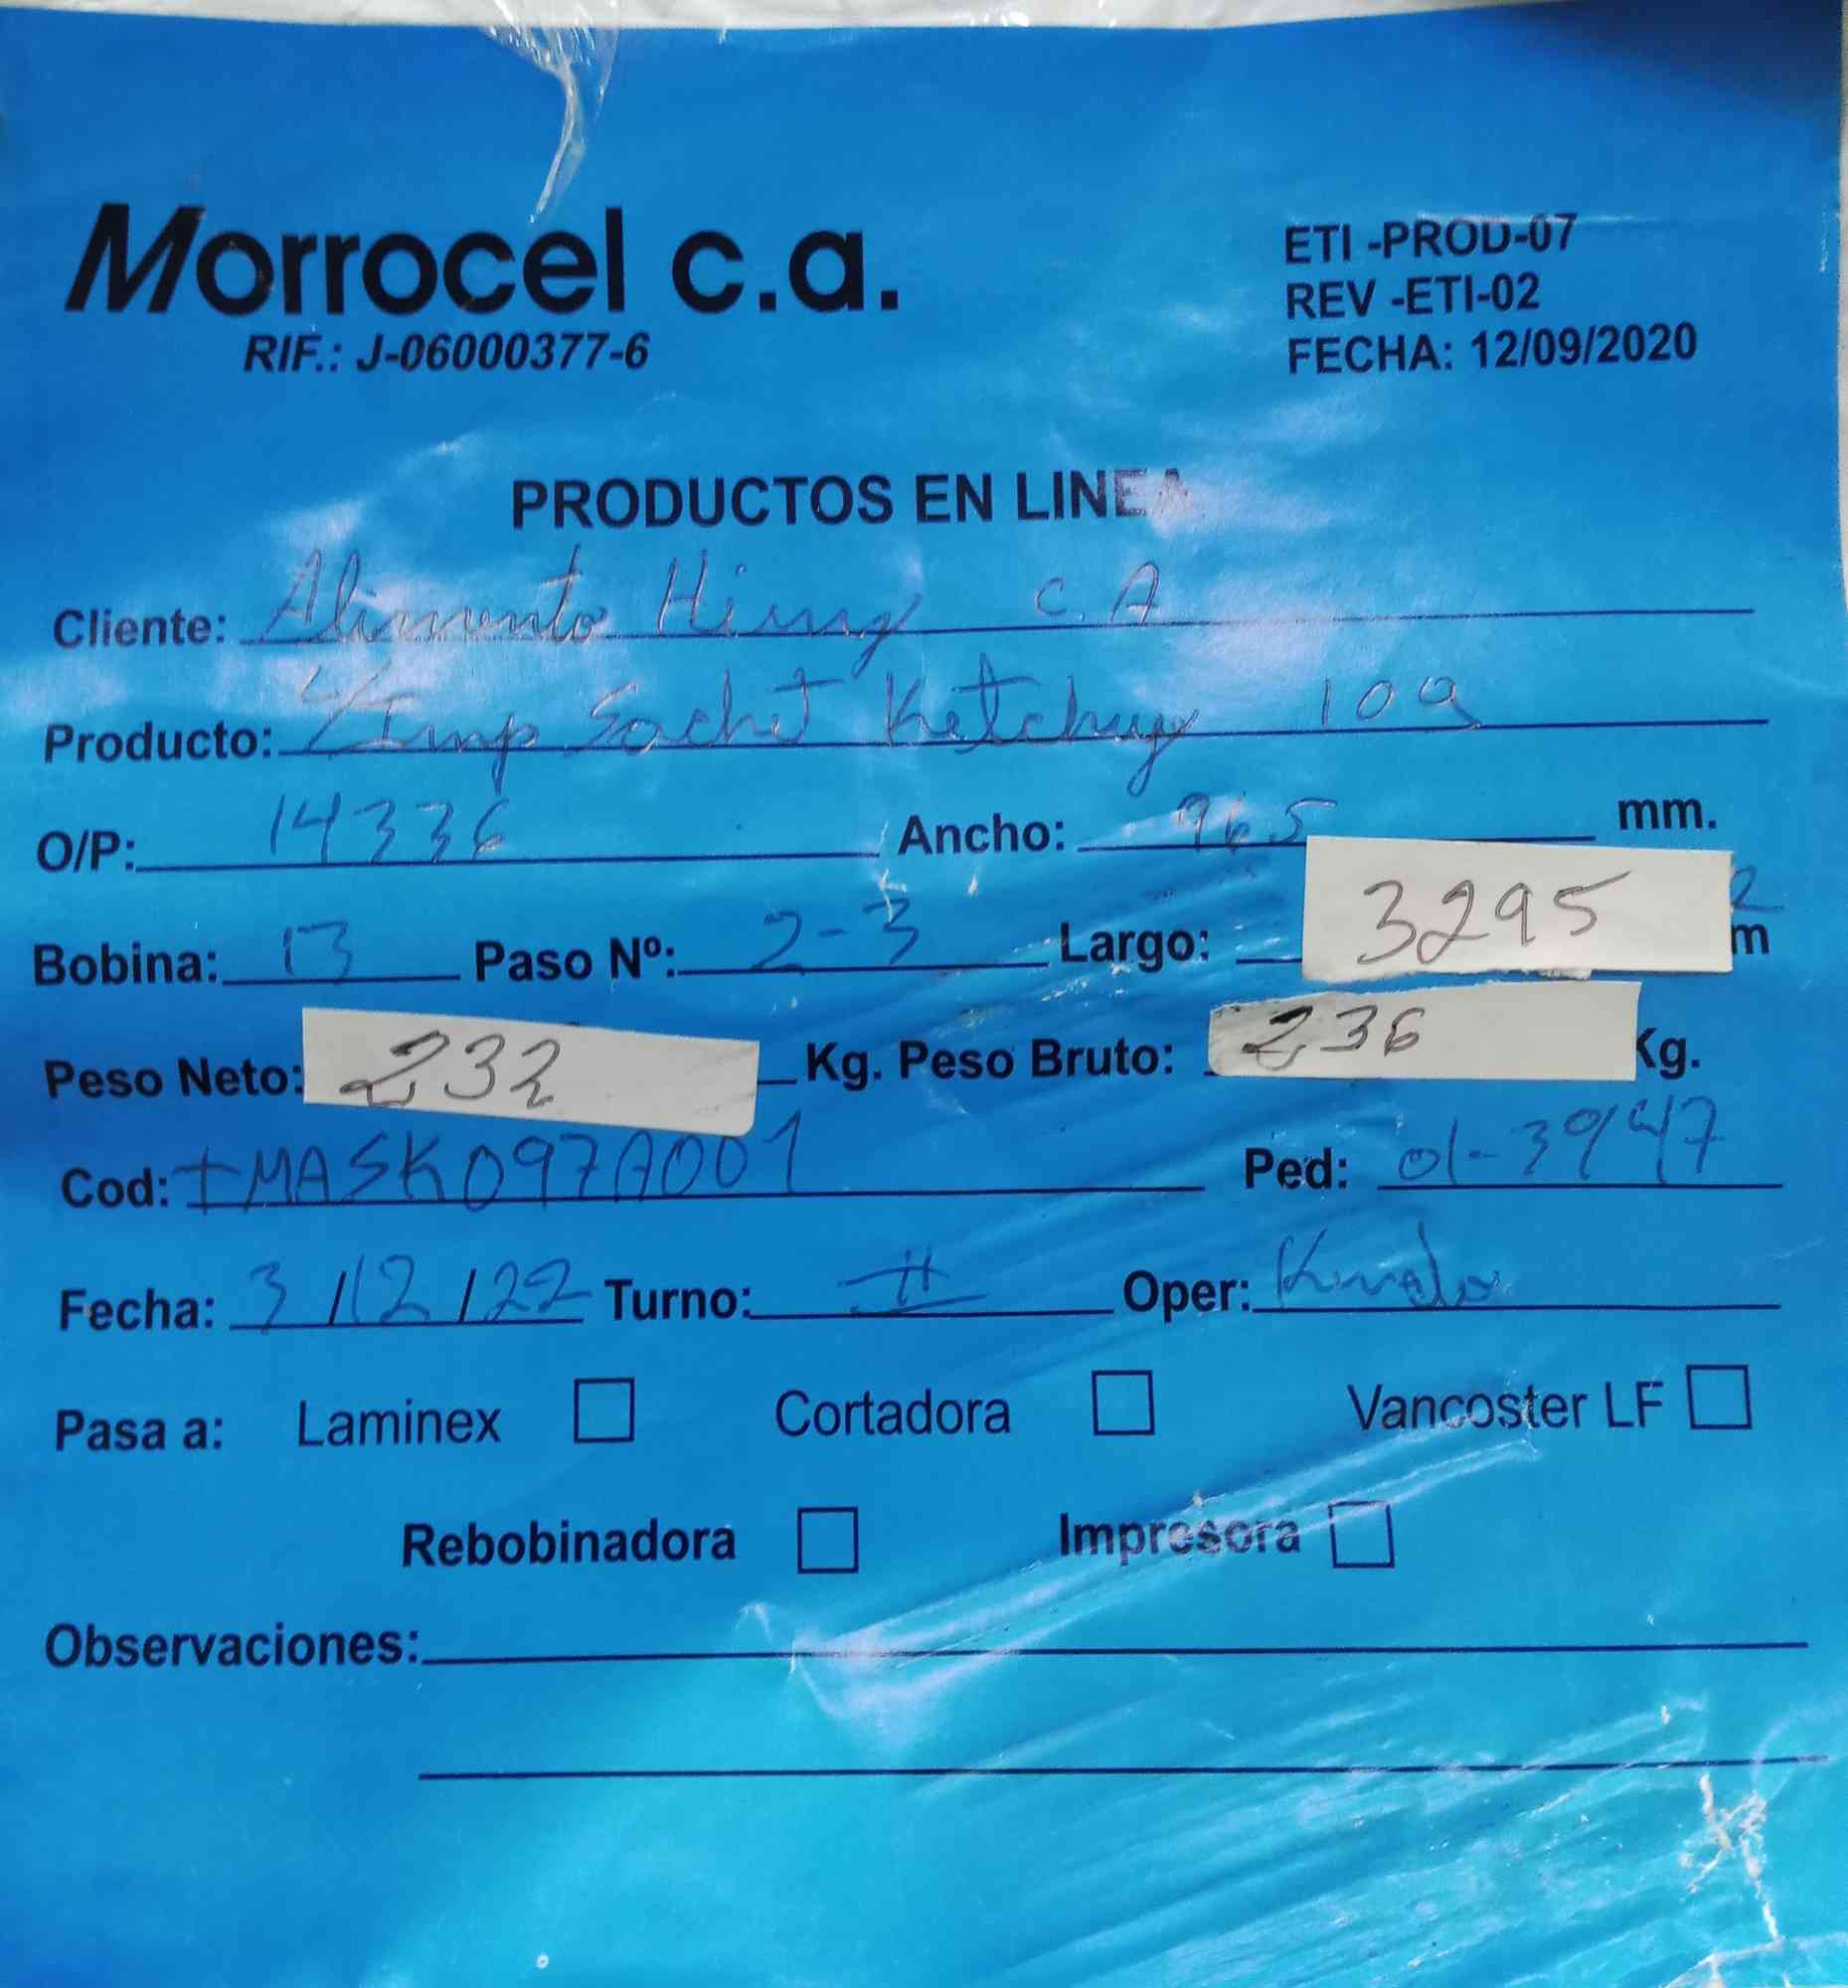 Morrocel c.a.
RIF.: J-06000377-6
ETI -PROD-07
REV -ETI-02
FECHA: 12/09/2020
PRODUCTOS EN LINEA
Cliente: Alimento C.A
Producto: L/Imp Sachet Ketchup 10g
O/P: 14336 Ancho: 965 mm.
Bobina: 13 Paso Nº: 2-3 Largo: 3295 m
Peso Neto: 232 Kg. Peso Bruto: 236 Kg.
Cod: IMASK097A001 Ped: 01-3947
Fecha: 3/12/22 Turno: II Oper:
Pasa a: Laminex Cortadora Vancoster LF
Rebobinadora Impresora
Observaciones: